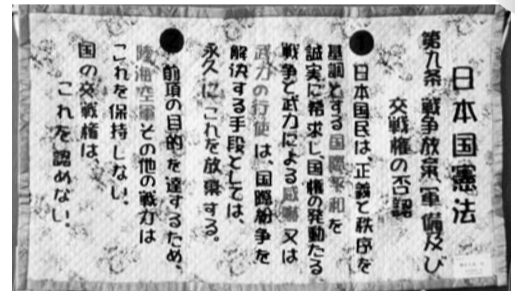 日本国憲法
第九条 戦争放棄、軍備及び
交戦権の否認
日本国民は、正義と秩序を
基調とする国際平和を
誠実に希求し国権の発動たる
戦争と武力による威嚇又は
武力の行使は、国際紛争を
解決する手段としては、
永久にこれを放棄する。
前項の目的を達するため、
陸海空軍その他の戦力は
これを保持しない。
国の交戦権は、
これを認めない。